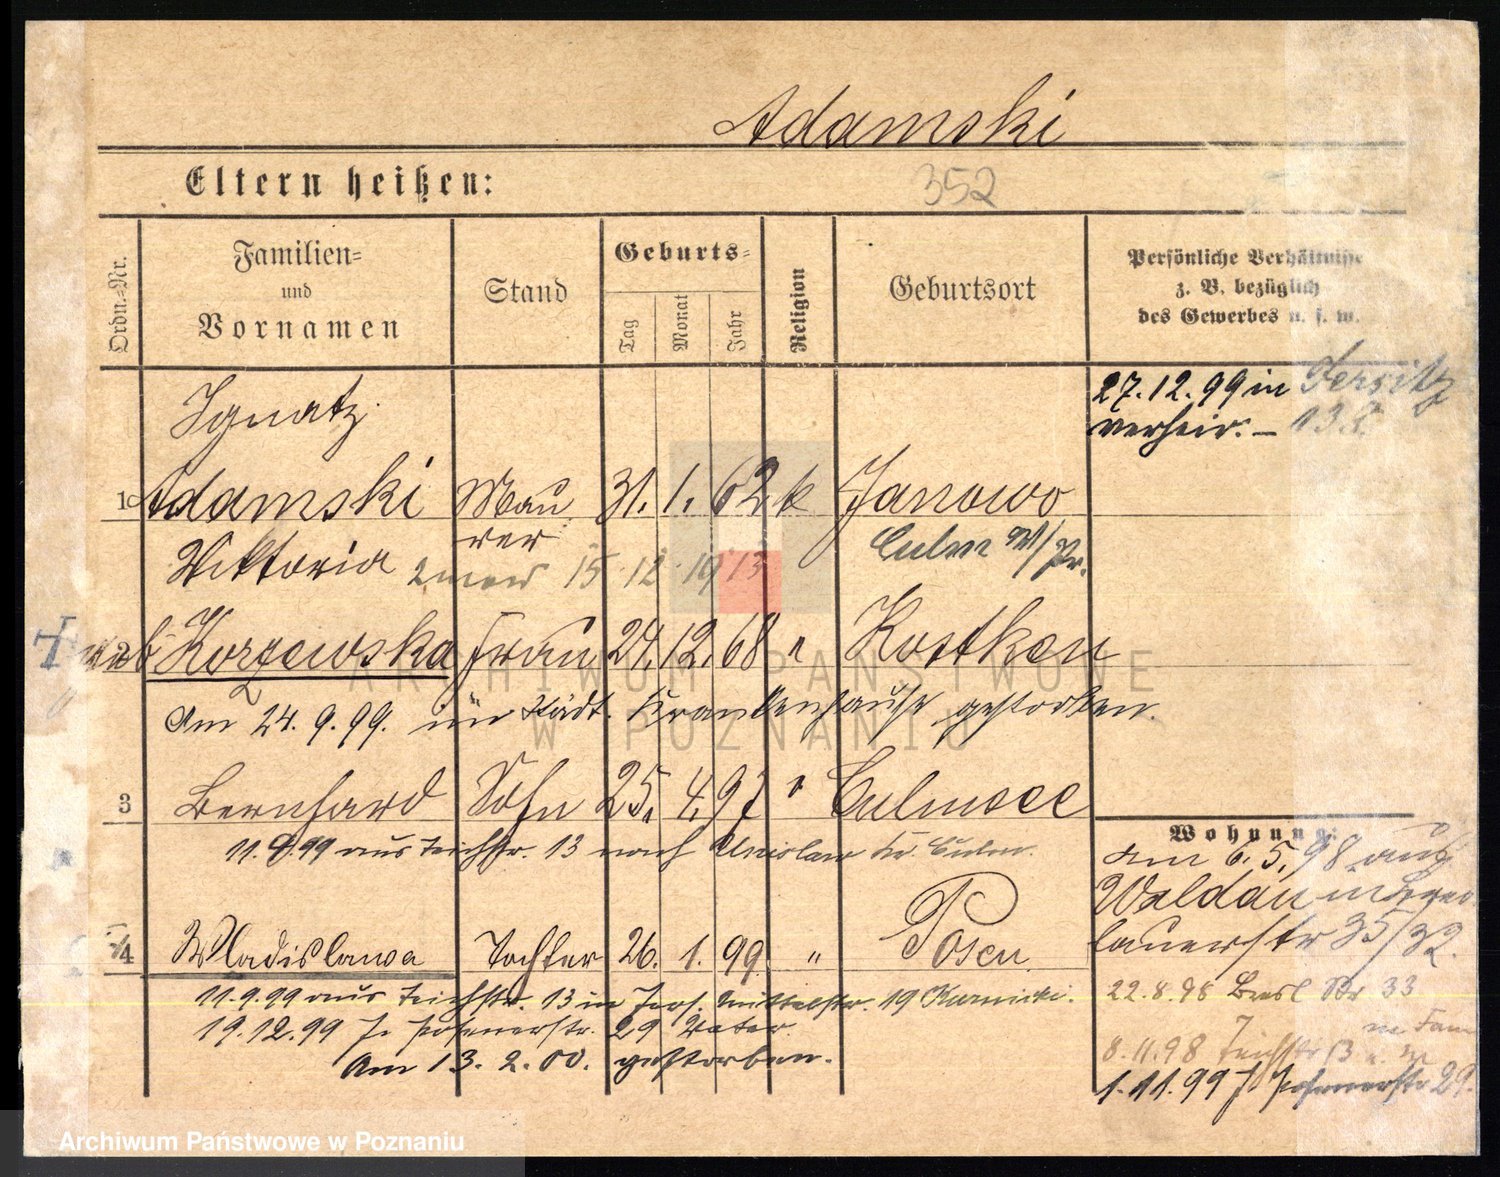 Adamski
Eltern heißen:
352
Ordn.=Nr.
Familien=
und
Vornamen
Stand
Geburts=
Tag
Monat
Jahr
Religion
Geburtsort
Persönliche Verhältnisse
z. B. bezüglich
des Gewerbes u. s. w.
Ignatz
27.12.99 in Jersitz
verheir. –
1 Adamski Mau 31. 1. 62 k Janowo
rer
Culm W/Pr.
Viktoria 15 12 1913
2 Korzewska Frau 24. 12. 68 " Rostken
Am 24. 9. 99. im Städt. Krankenhause gestorben.
3 Bernhard Sohn 25. 4. 97 " Culmsee
11.9.99 aus Teichstr. 13 nach Unislaw Kr. Culm.
4 Wladislawa Tochter 26. 1. 99 " Posen
11.9.99 aus Teichstr. 13 in Jers. Mittelstr. 19
19.12.99 Posenerstr. 29 Vater.
Am 13. 2. 00. gestorben.
Wohnung:
Am 6. 5. 98 aus
Waldau in
lauerstr 35/32.
22.8.98 Bresl Str 33
8.11.98 Teichstr 13
1.11.99 J. Posenerstr 29.
ARCHIWUM PAŃSTWOWE
W POZNANIU
Archiwum Państwowe w Poznaniu